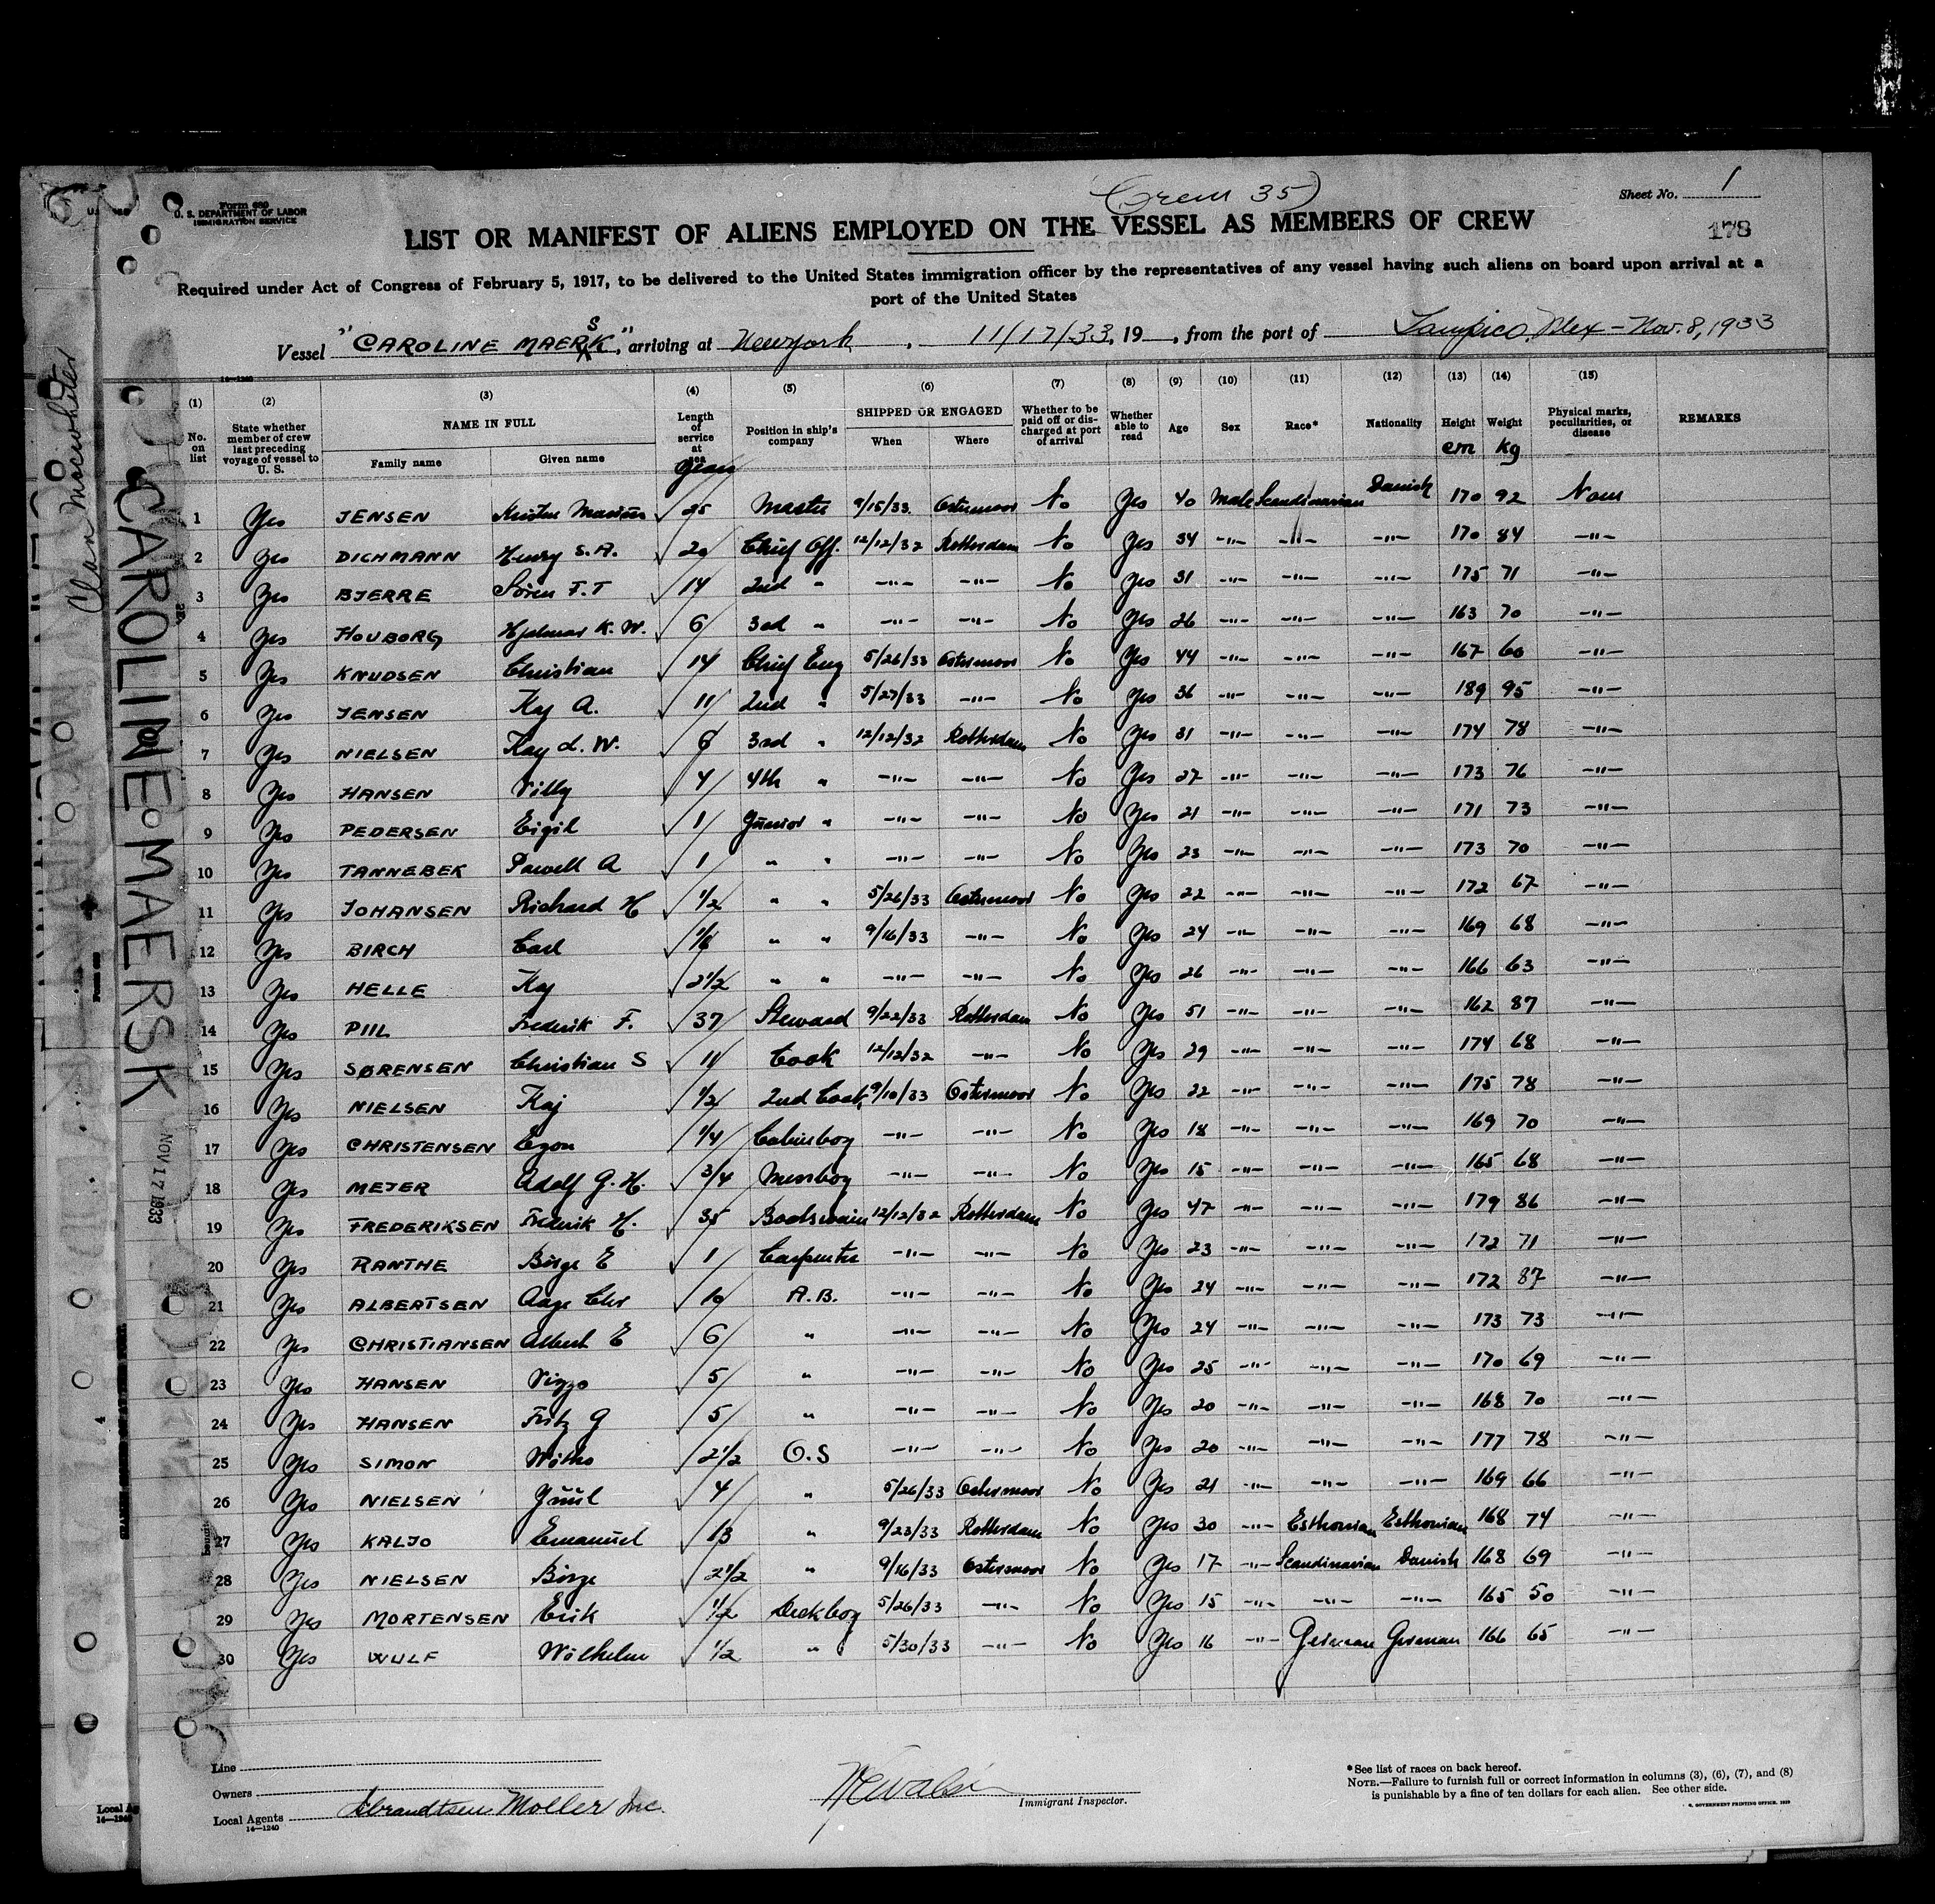 Crew 35
Form 680
U. S. DEPARTMENT OF LABOR
IMMIGRATION SERVICE
Sheet No. 1
178
LIST OR MANIFEST OF ALIENS EMPLOYED ON THE VESSEL AS MEMBERS OF CREW
Required under Act of Congress of February 5, 1917, to be delivered to the United States immigration officer by the representatives of any vessel having such aliens on board upon arrival at a
port of the United States
Vessel "CAROLINE MAERSK", arriving at Newyork, 11/17/33, 19 , from the port of Tampico, Mex - Nov. 8, 1933
14—1240
(1) (2) (3) (4) (5) (6) (7) (8) (9) (10) (11) (12) (13) (14) (15)
No. on list State whether member of crew last preceding voyage of vessel to U. S. NAME IN FULL Family name Given name Length of service at sea years Position in ship's company SHIPPED OR ENGAGED When Where Whether to be paid off or discharged at port of arrival Whether able to read Age Sex Race* Nationality Height cm Weight kg Physical marks, peculiarities, or disease REMARKS
1 Yes JENSEN Kristen Marius 25 Master 9/15/33 Ostermoor No Yes 40 Male Scandinavian Danish 170 92 None
2 Yes DICHMANN Henry S.A. 20 Chief Off. 12/12/32 Rotterdam No Yes 34 -"- -"- -"- 170 84 -"-
3 Yes BJERRE Sören F.T 14 2nd " -"- -"- No Yes 31 -"- -"- -"- 175 71 -"-
4 Yes HOUBORG Hjalmar K.W. 6 3rd " -"- -"- No Yes 26 -"- -"- -"- 163 70 -"-
5 Yes KNUDSEN Christian 14 Chief Eng 5/26/33 Ostermoor No Yes 44 -"- -"- -"- 167 60 -"-
6 Yes JENSEN Kaj A. 11 2nd " 5/27/33 -"- No Yes 36 -"- -"- -"- 189 95 -"-
7 Yes NIELSEN Kay L. W. 6 3rd " 12/12/32 Rotterdam No Yes 31 -"- -"- -"- 174 78 -"-
8 Yes HANSEN Villy 4 4th " -"- -"- No Yes 27 -"- -"- -"- 173 76 -"-
9 Yes PEDERSEN Eigil 1 Junior " -"- -"- No Yes 21 -"- -"- -"- 171 73 -"-
10 Yes TANNEBEK Powell A 1 " " -"- -"- No Yes 23 -"- -"- -"- 173 70 -"-
11 Yes JOHANSEN Richard H 1/2 " " 5/26/33 Ostermoor No Yes 22 -"- -"- -"- 172 67 -"-
12 Yes BIRCH Carl " " 9/16/33 -"- No Yes 24 -"- -"- -"- 169 68 -"-
13 Yes HELLE Kaj 2 1/2 " " -"- -"- No Yes 26 -"- -"- -"- 166 63 -"-
14 Yes PIIL Frederik F. 37 Steward 9/22/33 Rotterdam No Yes 51 -"- -"- -"- 162 87 -"-
15 Yes SØRENSEN Christian S 11 Cook 12/12/32 -"- No Yes 29 -"- -"- -"- 174 68 -"-
16 Yes NIELSEN Kaj 1/2 2nd Cook 9/10/33 Ostermoor No Yes 22 -"- -"- -"- 175 78 -"-
17 Yes CHRISTENSEN Egon 1/4 Cabinboy -"- -"- No Yes 18 -"- -"- -"- 169 70 -"-
18 Yes MEJER Adolf G. H. 3/4 Messboy -"- -"- No Yes 15 -"- -"- -"- 165 68 -"-
19 Yes FREDERIKSEN Frederik H. 35 Boatswain 12/12/32 Rotterdam No Yes 47 -"- -"- -"- 179 86 -"-
20 Yes RANTHE Börge E 1 Carpenter -"- -"- No Yes 23 -"- -"- -"- 172 71 -"-
21 Yes ALBERTSEN Aage Chr 10 A.B. -"- -"- No Yes 24 -"- -"- -"- 172 87 -"-
22 Yes CHRISTIANSEN Albert E 6 " -"- -"- No Yes 24 -"- -"- -"- 173 73 -"-
23 Yes HANSEN Viggo 5 " -"- -"- No Yes 25 -"- -"- -"- 170 69 -"-
24 Yes HANSEN Fritz G 5 " -"- -"- No Yes 20 -"- -"- -"- 168 70 -"-
25 Yes SIMON 2 1/2 O.S -"- -"- No Yes 20 -"- -"- -"- 177 78 -"-
26 Yes NIELSEN Juul 4 " 5/26/33 Ostermoor No Yes 21 -"- -"- -"- 169 66 -"-
27 Yes KALJO Emanuel 13 " 9/23/33 Rotterdam No Yes 30 -"- Esthonian Esthonian 168 74 -"-
28 Yes NIELSEN Börge 2 1/2 " 9/16/33 Ostermoor No Yes 17 -"- Scandinavian Danish 168 69 -"-
29 Yes MORTENSEN Erik 1/2 Deckboy 5/26/33 -"- No Yes 15 -"- -"- -"- 165 50 -"-
30 Yes WULF Wilhelm 1/2 " 5/30/33 -"- No Yes 16 -"- German German 166 65 -"-
Line
Owners
Local Agents Sbrandtsen Moller Inc.
14—1240
Immigrant Inspector.
*See list of races on back hereof.
NOTE.—Failure to furnish full or correct information in columns (3), (6), (7), and (8)
is punishable by a fine of ten dollars for each alien. See other side.
CAROLINE MAERSK
NOV 17 1933
Local Ag
14—1240